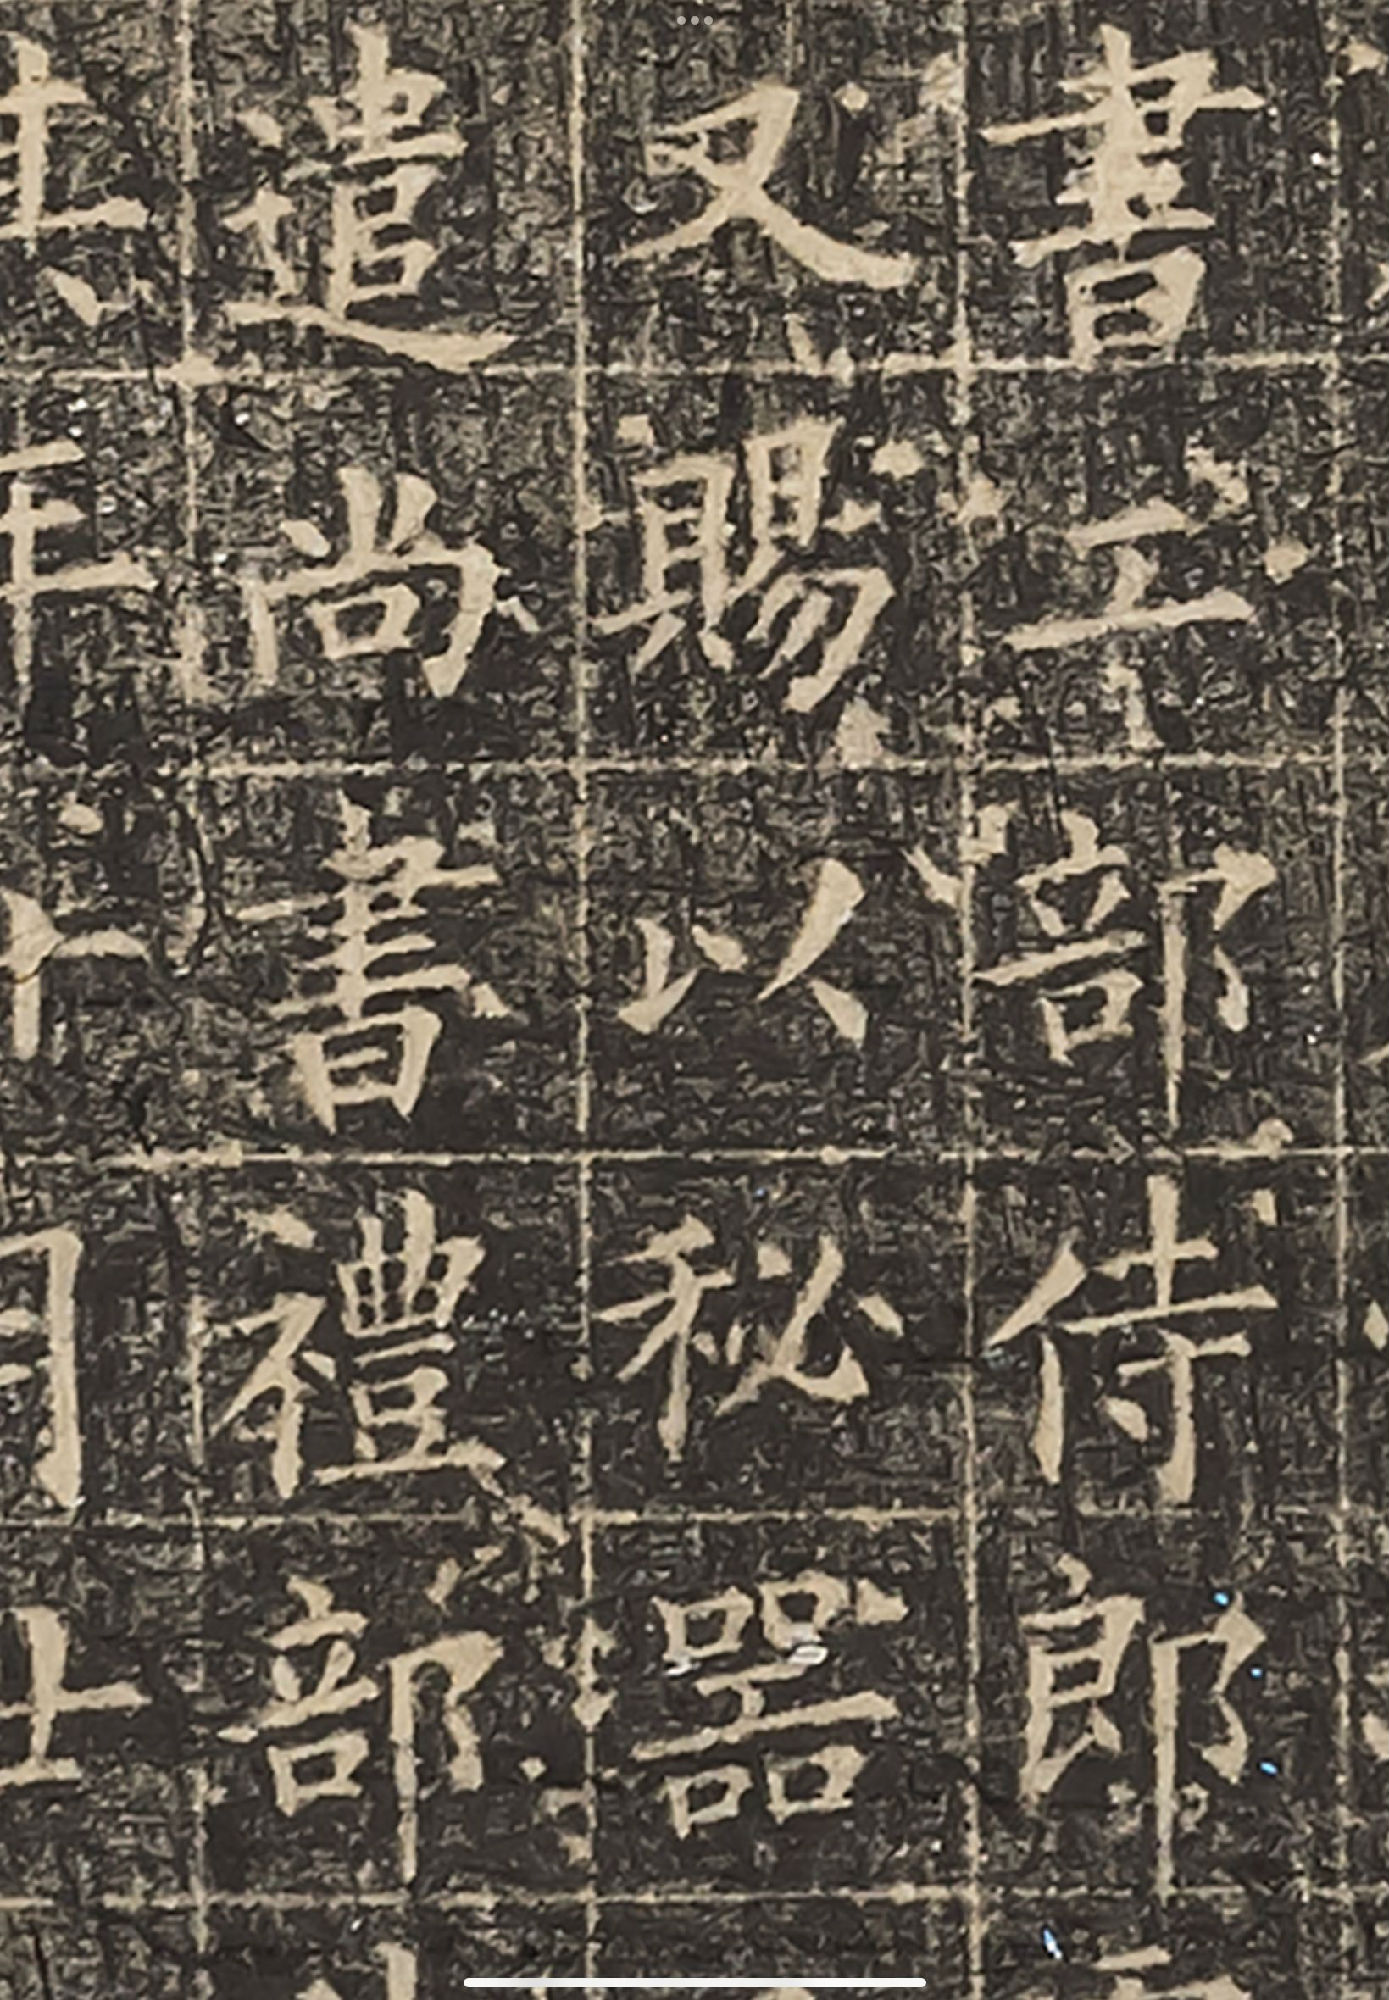 書工部侍郎
又賜以秘器
遣尚書禮部